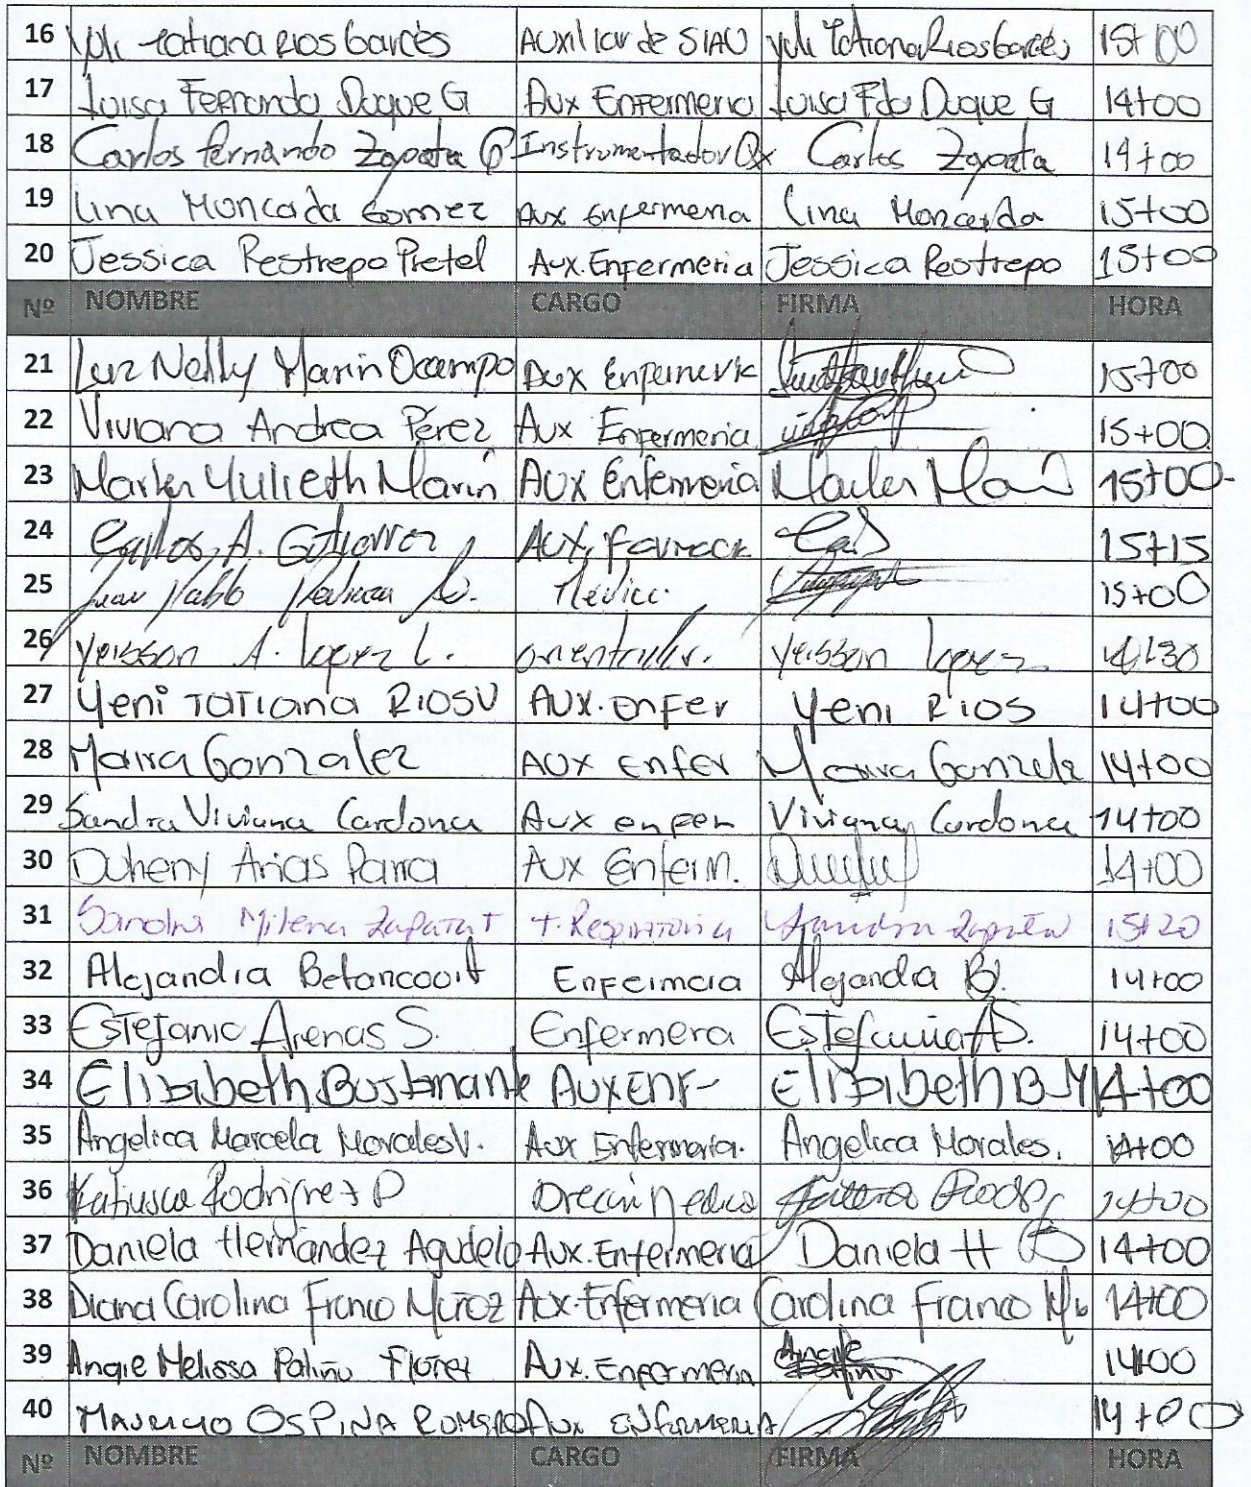 16 Yuli Tatiana Rios Garcés Auxiliar de SIAU Yuli Tatiana Rios Garcés 15+00
17 Luisa Fernanda Duque G Aux Enfermeria Luisa Fda Duque G 14+00
18 Carlos Fernando Zapata P Instrumentador Qx Carlos Zapata 14+00
19 Lina Moncada Gomez Aux Enfermeria Lina Moncada 15+00
20 Jessica Restrepo Pretel Aux. Enfermeria Jessica Restrepo 15+00
Nº NOMBRE CARGO FIRMA HORA
21 Luz Nelly Marin Ocampo Aux Enfermeria 15+00
22 Viviana Andrea Pérez Aux Enfermeria 15+00
23 Marlen Yulieth Marin Aux Enfermeria Marlen 15+00-
24 Carlos A. Gutierrez Aux, Farmacia 15+15
25 Juan Pablo Médico 15+00
26 Yeisson A. Lopez L. orientador. Yeisson Lopez
27 Yeni Tatiana RIOSV AUX. enfer Yeni Rios 14+00
28 Maira Gonzalez AUX enfer Maira Gonzalez 14+00
29 Sandra Viviana Cardona Aux enfer Viviana Cardona 14+00
30 Duheny Arias Parra Aux Enferm. 14+00
31 Sandra Milena Zapata T t. Respiratoria Sandra Zapata 15+20
32 Alejandra Betancourt Enfermera Alejandra B. 14+00
33 Estefania Arenas S. Enfermera Estefania AS. 14+00
34 Elizabeth Bustamante Aux ENF- Elizabeth B M 14+00
35 Angelica Marcela Morales V. Aux Enfermeria. Angelica Morales. 14+00
36 Katiusca Rodriguez P Medico 14+00
37 Daniela Hernández Agudelo Aux. Enfermeria Daniela H 14+00
38 Diana Carolina Franco Muñoz Aux. Enfermeria Carolina Franco 14+00
39 Angie Melissa Patiño Florez Aux. Enfermeria Angie Patiño 14+00
40 MAURICIO OSPINA ROMERO Aux ENFERMERIA 14+00
Nº NOMBRE CARGO FIRMA HORA